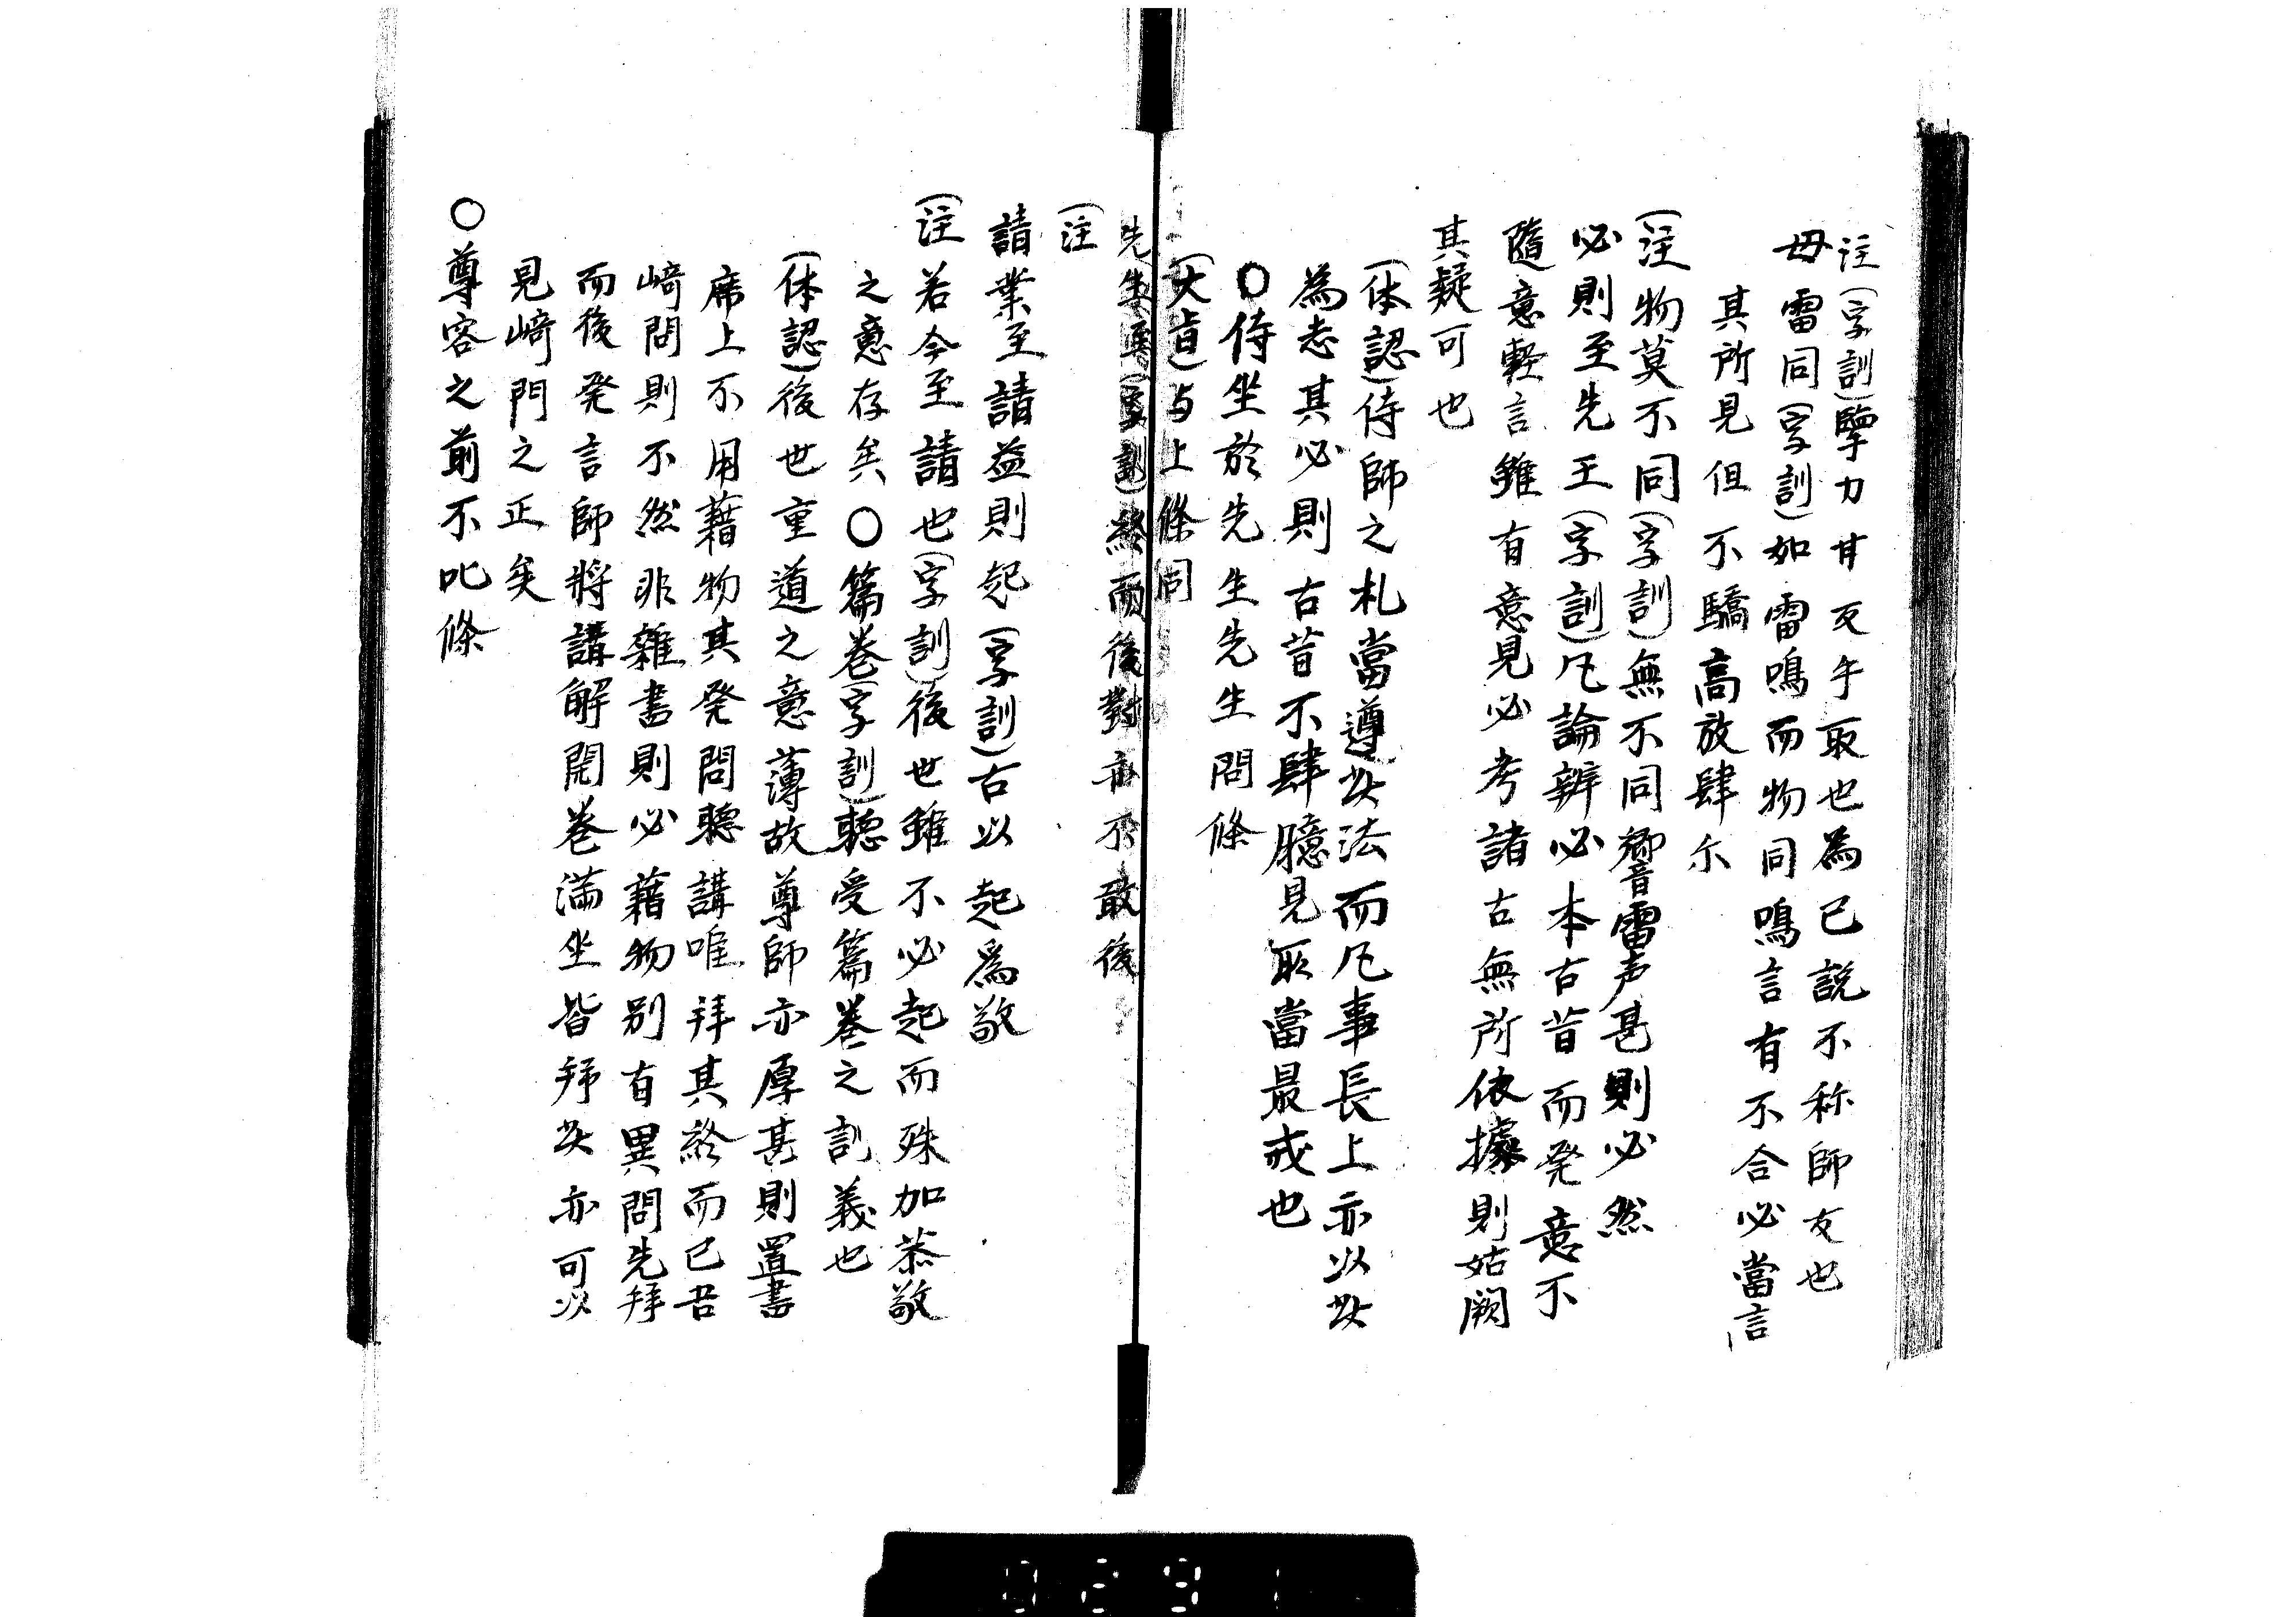 註(字訓)擥力甘反手取也為己説不称師友也
毋雷同(字訓)如雷鳴而物同鳴言有不合必當言
其所見但不驕高放肆尓
(註物莫不同(字訓)無不同響雷声甚則必然
必則至先王(字訓)凡論辨必本古昔而発意不
隨意軽言雖有意見必考諸古無所依據則姑闕
其疑可也
(体認)侍師之礼當遵此法而凡事長上亦以此
為志其必則古昔不肆臆見取當最戒也
○侍坐於先生先生問條
(大旨)与上條同
先生問(字訓)終而後對亦不敢後
(註
請業至請益則起(字訓)古以起為敬
(註若今至請也(字訓)後世雖不必起而殊加恭敬
之意存矣○篇卷(字訓)聴受篇巻之訓義也
(体認)後世重道之意薄故尊師亦厚甚則置書
席上不用藉物其発問聴講唯拜其終而已吾
﨑問則不然非雜書則必藉物別有異問先拜
而後発言師將講解開巻満坐皆拜此亦可以
見﨑門之正矣
○尊客之前不叱條
0291